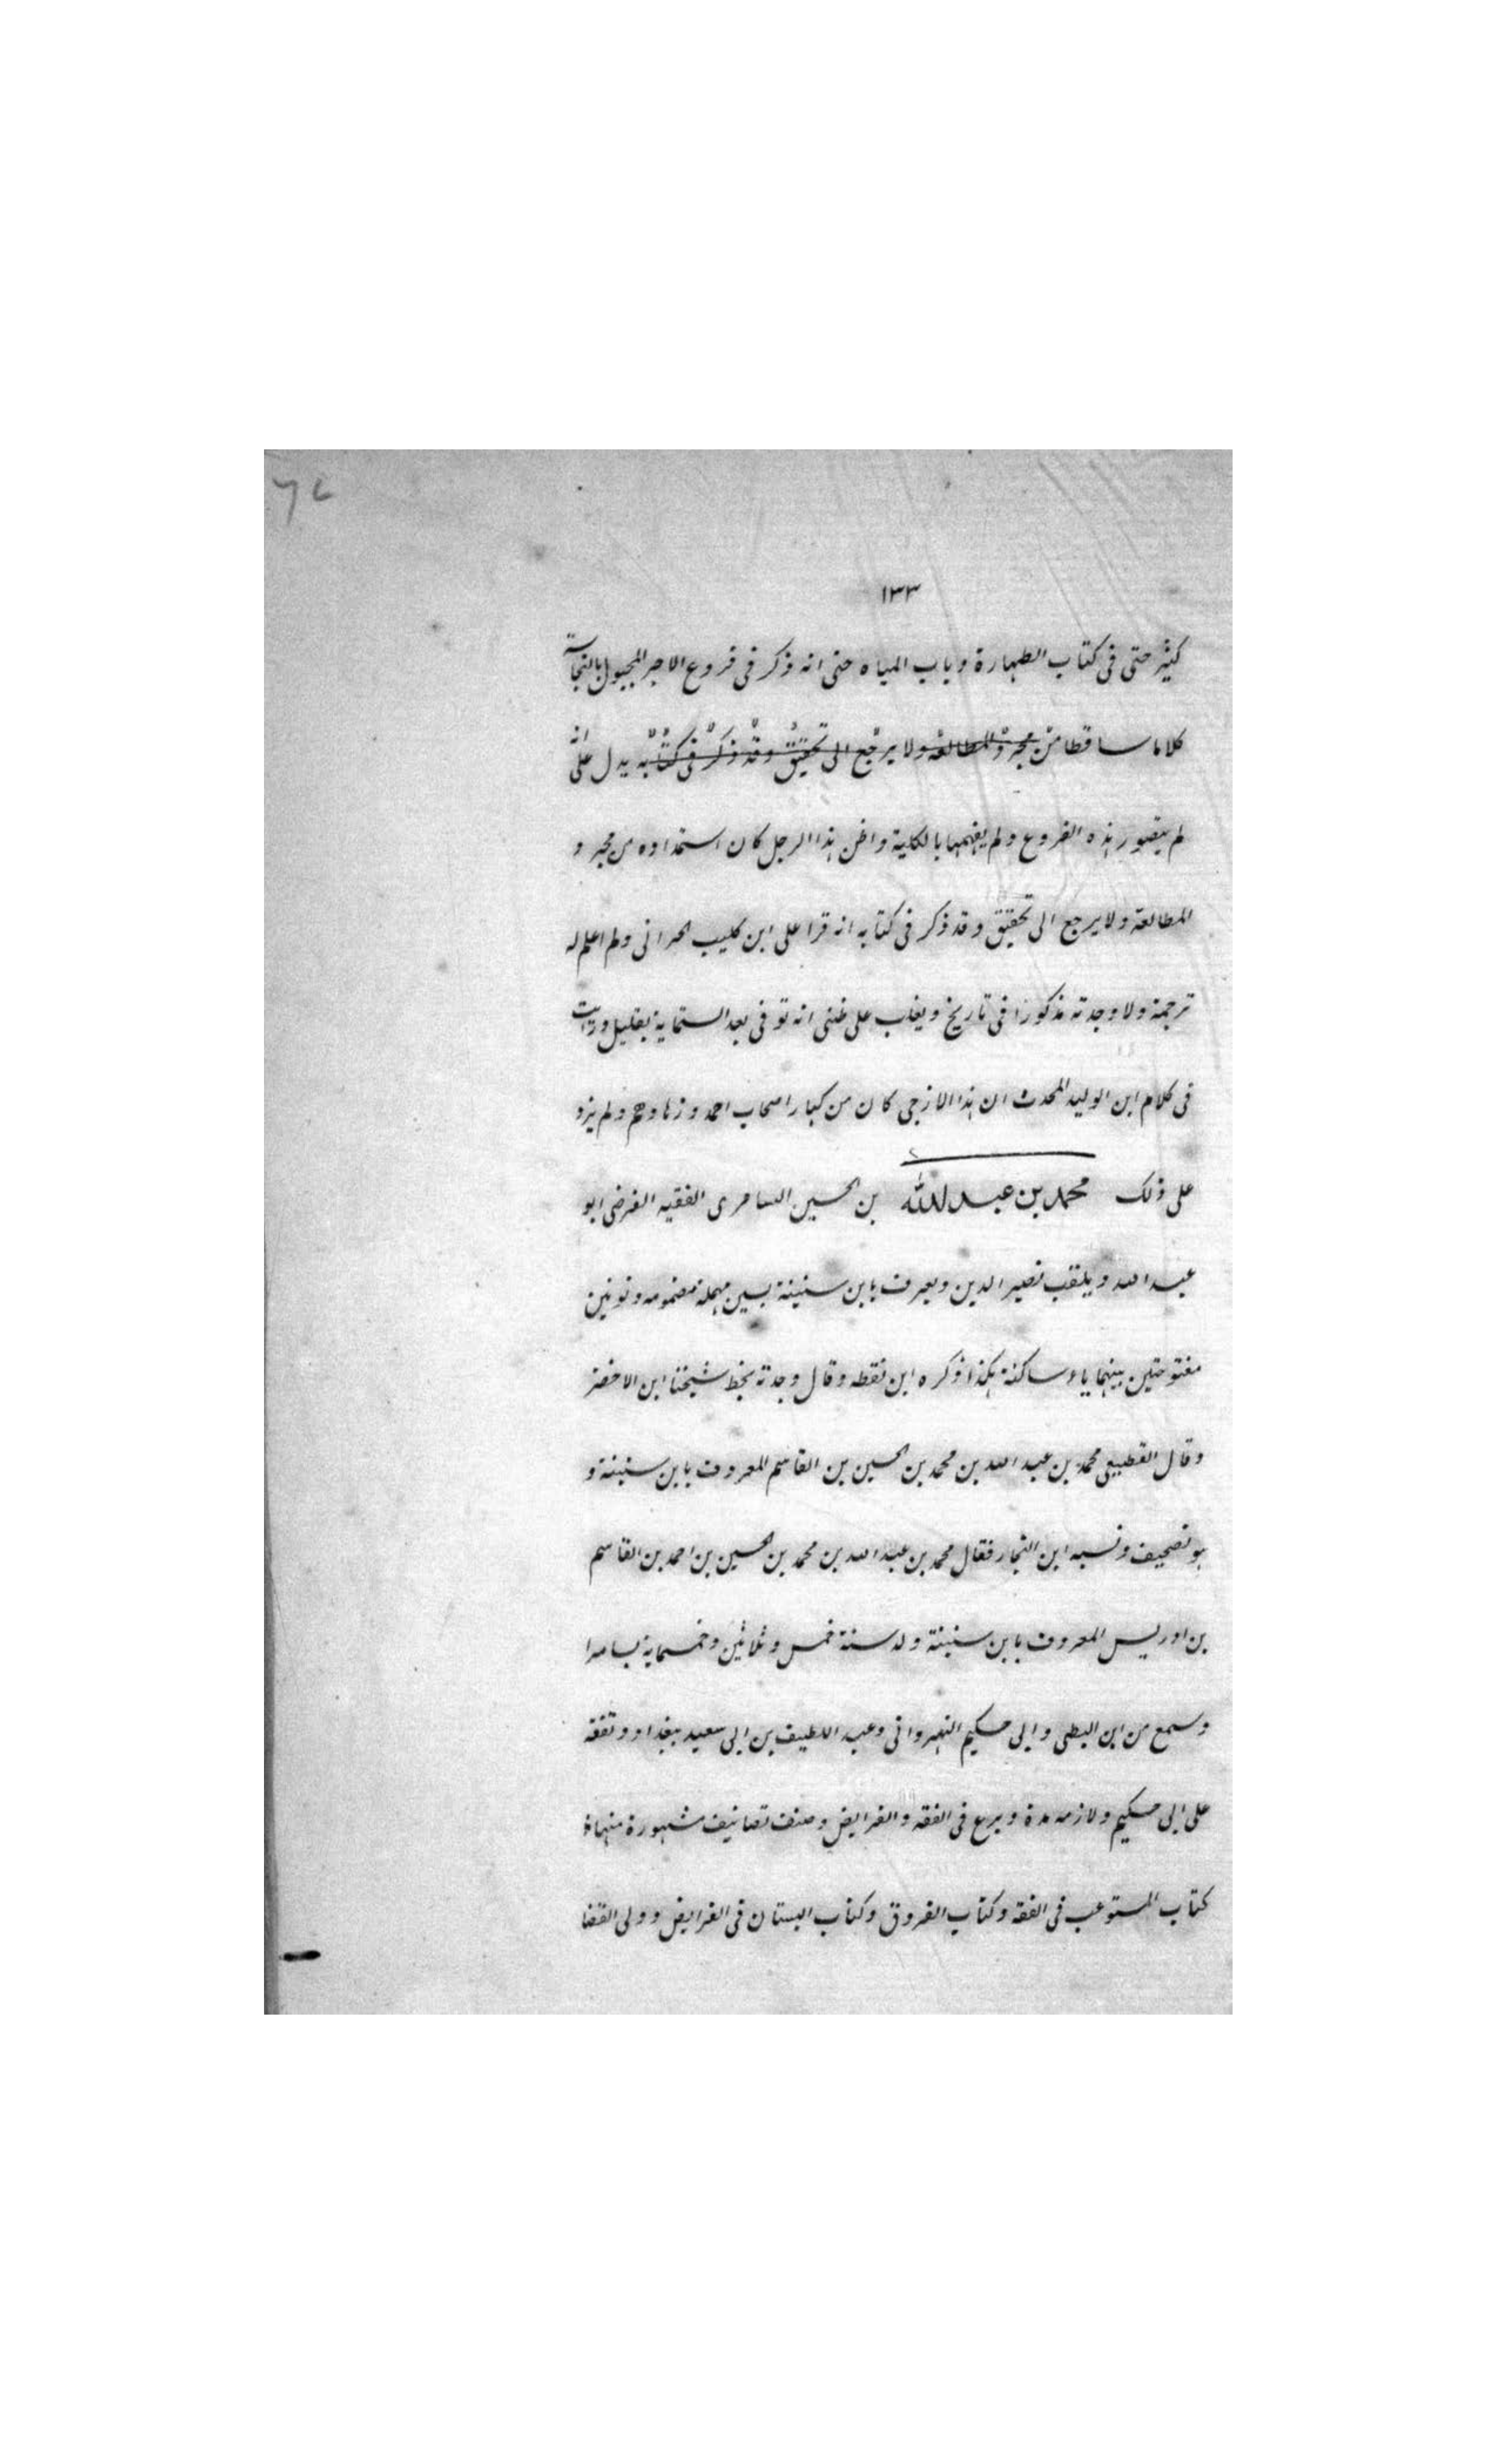 ٦٧
١٣٣
كثير حتى فى كتاب الطهارة وباب المياه حتى انه ذكر فى فروع الاجر المجبول بالنجاسة
كلاما ساقطا من مجرد المطالعة ولا يرجع الى تحقيق وقد ذكر فى كتابه يدل على انه
لم يتصور هذه الفروع ولم يفهمها بالكلية واظن هذا الرجل كان استمداده من مجرد
المطالعة ولا يرجع الى تحقيق وقد ذكر فى كتابه انه قرا على ابن كليب الحرانى ولم اعلم له
ترجمة ولا وجدته مذكورا فى تاريخ ويغلب على ظنى انه توفى بعد الستماية بقليل ورايت
فى كلام ابن الوليد المحدث ان هذا الازجى كان من كبار اصحاب احمد وزهادهم ولم يزد
على ذلك محمد بن عبد الله بن الحسين السامرى الفقيه الفرضى ابو
عبد الله ويلقب نصير الدين ويعرف بابن سنينة بسين مهملة مضمومه ونونين
مفتوحتين بينهما ياء ساكنة هكذا ذكره ابن نقطه وقال وجدته بخط شيخنا ابن الاخضر
وقال القطيعى محمد بن عبد الله بن محمد بن الحسين بن القاسم المعروف بابن سنينة و
هو تصحيف ونسبه ابن النجار فقال محمد بن عبد الله بن محمد بن الحسين بن احمد بن القاسم
بن ادريس المعروف بابن سنينة ولد سنة خمس وثلاثين وخمسماية بسامرا
وسمع من ابن البطى وابى حكيم النهروانى وعبد اللطيف بن ابى سعيد ببغداد وتفقه
على ابى حكيم ولازمه مدة وبرع فى الفقه والفرايض وصنف تصانيف مشهورة منها
كتاب المستوعب فى الفقه وكتاب الفروق وكتاب البستان فى الفرايض وولى القضا